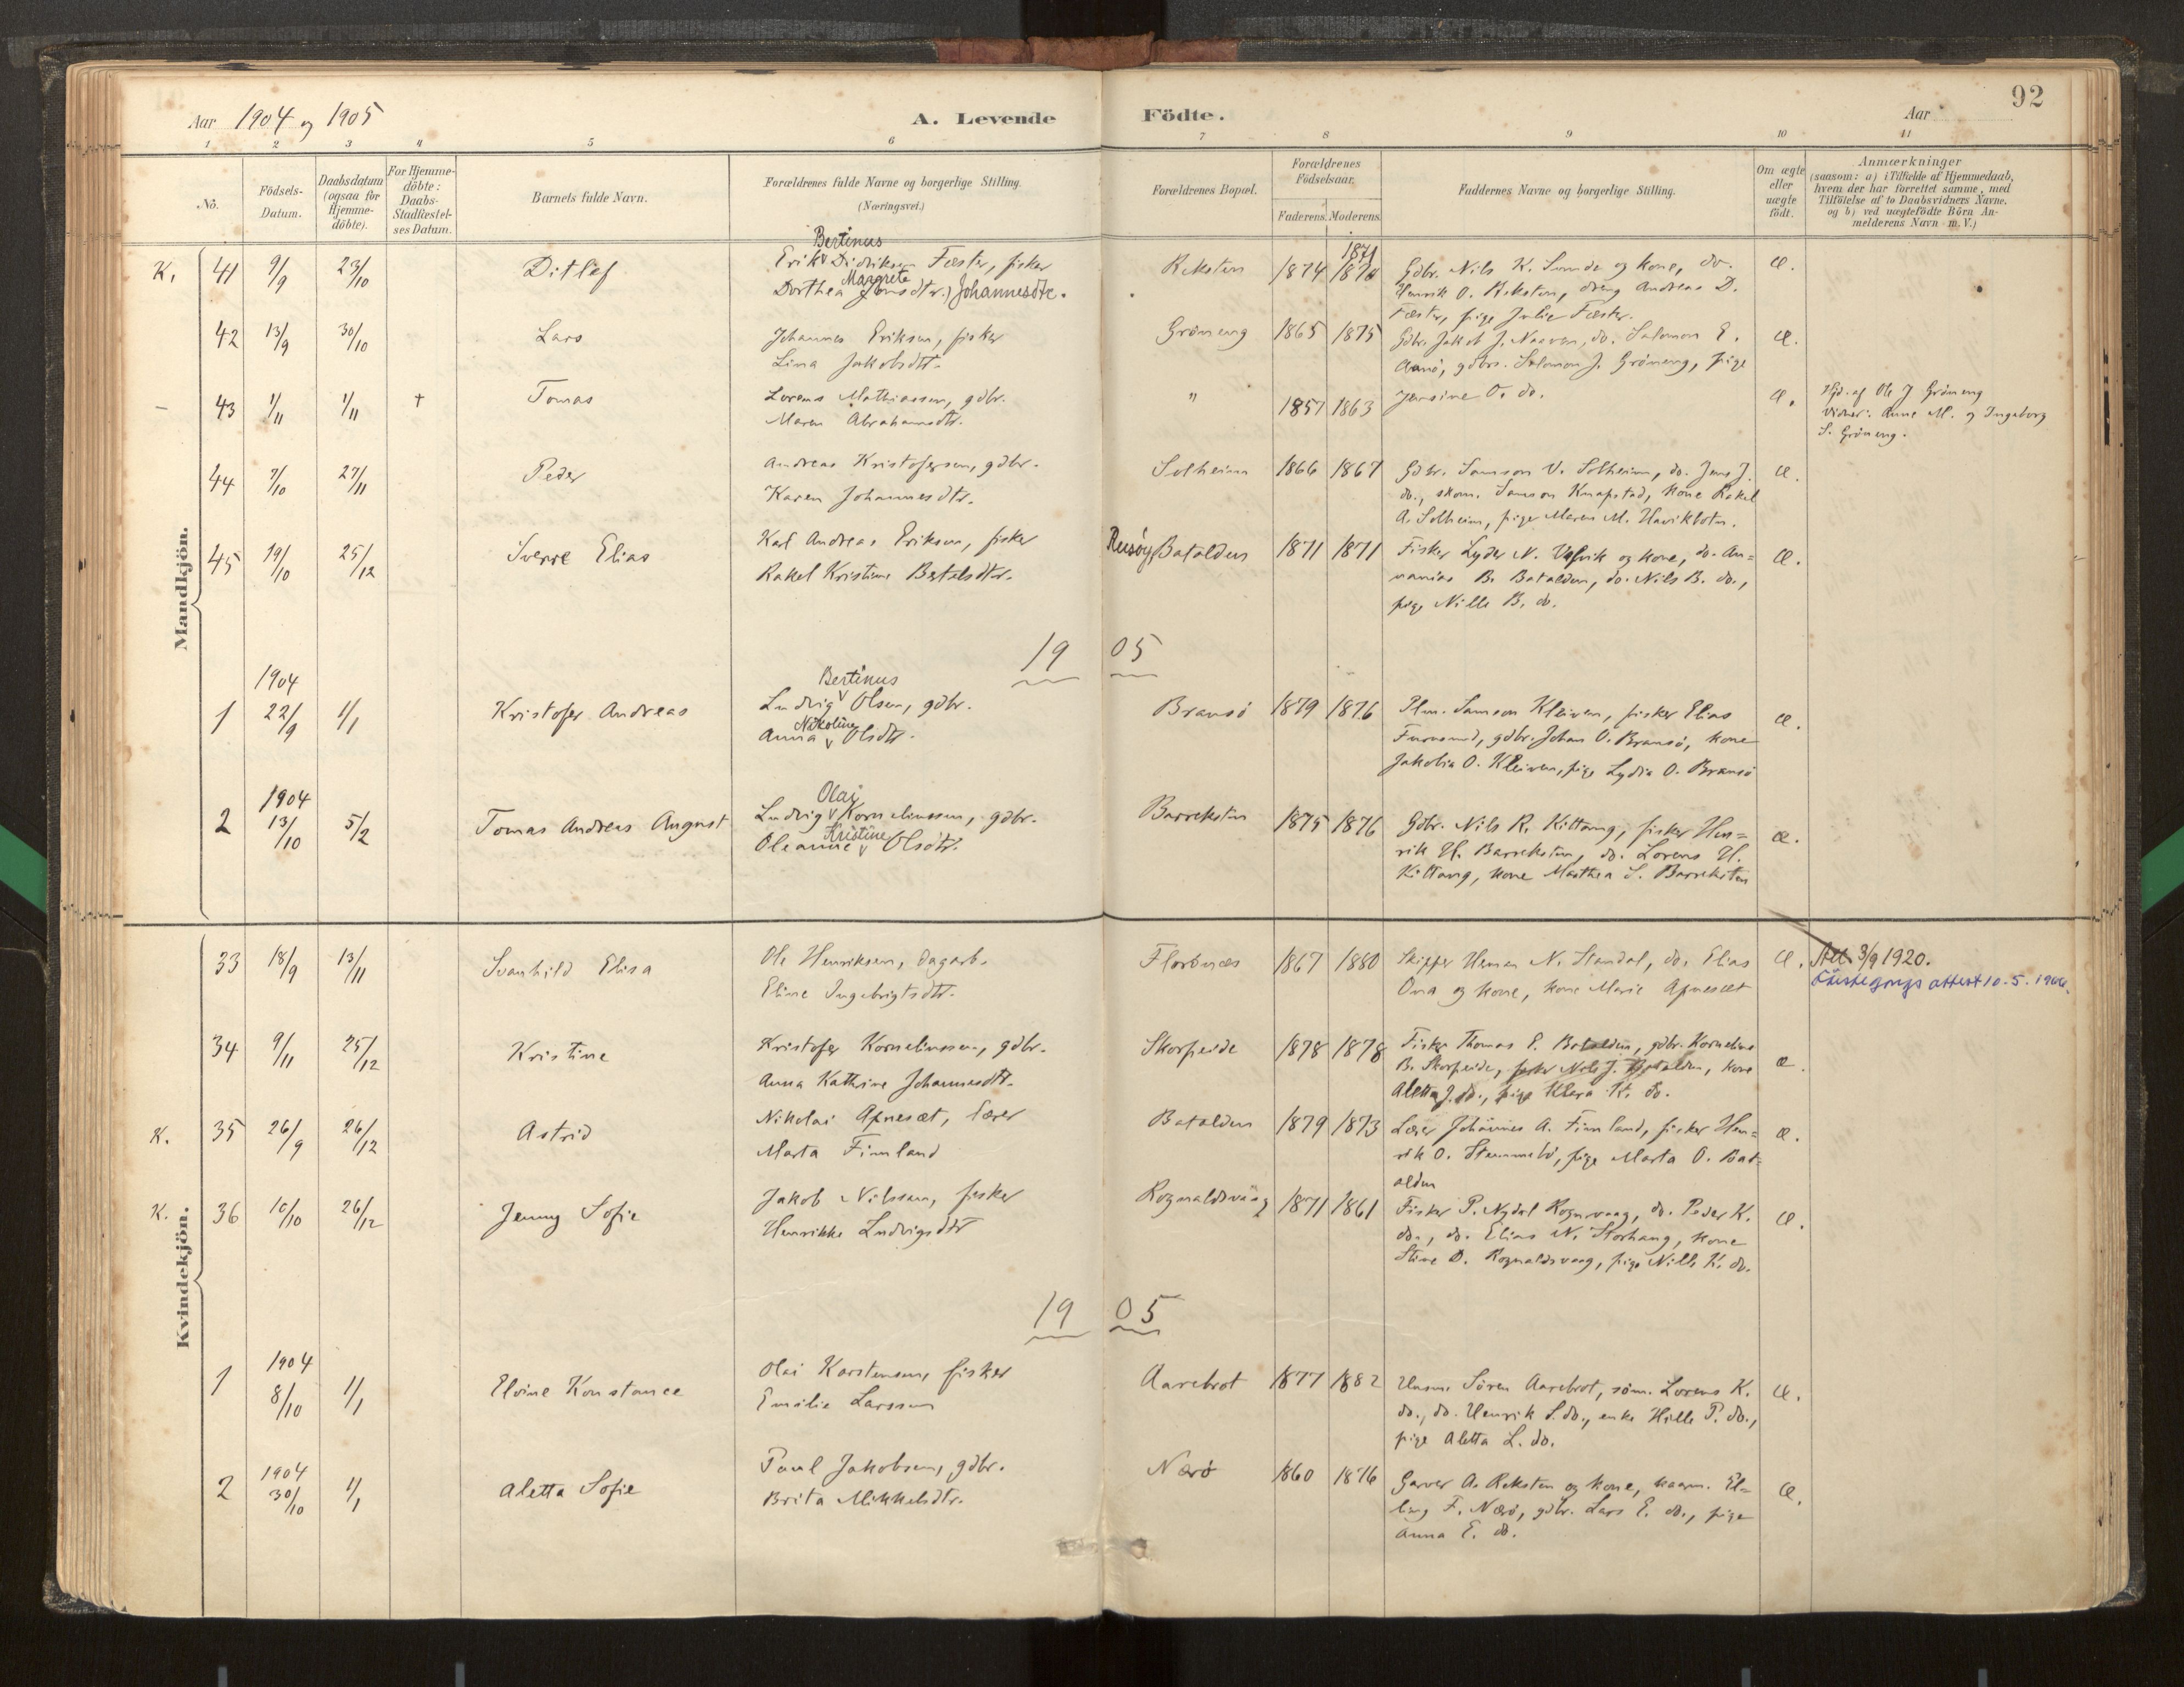 92
Aar 1904 og 1905
A. Levende Födte.
Aar
1 2 3 4 5 6 7 8 9 10 11
No.
Födsels-Datum.
Daabsdatum (ogsaa for Hjemme-döbte).
For Hjemme-döbte: Daabs-Stadfæstel-ses Datum.
Barnets fulde Navn.
Forældrenes fulde Navne og borgerlige Stilling.
(Næringsvei.)
Forældrenes Bopæl.
Forældrenes Födselsaar.
Faderens. Moderens.
Faddernes Navne og borgerlige Stilling.
Om ægte eller uægte födt.
Anmærkninger
(saasom: a) i Tilfælde af Hjemmedaab,
hvem der har forrettet samme, med
Tilföielse af to Daabsvidners Navne.
og b) ved uægtefödte Börn An-
melderens Navn m. V.)
Mandkjön.
K. 41 9/9 23/10 Ditlef
Bertinus
Erik Didriksen Fæster, fisker
Margrete
Dorthea Jonsdtr.) Johannesdtr.
Reksten 1874 1870 1871
Gdbr. Nils K. Sunde og kone, do.
Henrik O. Reksten, dreng Andreas D.
Fæster, pige Julie Fæster.
æ.
42 13/9 30/10 Lars
Johannes Eriksen, fisker
Lina Jakobsdtr.
Gröneng 1865 1875
Gdbr. Jakob J. Naaven, do. Salomon E.
Aanö, gdbrs. Salomon J. Gröneng, pige
Jensine O. do.
æ.
– 43 1/11 1/11 † Tomas
Lorens Mathiassen, gdbr.
Maren Abrahamsdtr.
" 1857 1863
æ.
Hjd. af Ole J Gröneng
Vidner: Anne M. og Ingeborg
S. Gröneng.
44 7/10 27/11 Peder
Andreas Kristofersen, gdbr.
Karen Johannesdtr.
Solheim 1866 1867
Gdbr. Samson V. Solheim, do. Jens J.
do., skom. Samson Knapstad, kone Rakel
A. Solheim, pige Maren M. Havikbotn.
æ.
45 19/10 25/12 Sverre Elias
Karl Andreas Eriksen, fisker
Rakel Kristine Bertelsdtr.
Reisöy Batalden 1871 1871
Fisker Lyder N. Vefrik og kone, do. An=
nanias B. Batalden, do. Nils B. do.,
pige Nille B. do.
æ.
19 05
1 1904 22/9 1/1 Kristofer Andreas
Bertinus
Ludvig Olsen, gdbr.
Nikoline
Anna Olsdtr.
Bransö 1879 1876
Plm. Samson Kleiven, fisker Elias
Furesund, gdbr. Johan O. Bransö, kone
Jakobia O. Kleiven, pige Lydia O. Bransö
æ.
2 1904 13/10 5/2 Tomas Andreas August
Olai
Ludvig Korneliussen, gdbr.
Kristine
Oleanne Olsdtr.
Barreksten 1875 1876
Gdbr. Nils R. Kittang, fisker Hen=
rik H. Barreksten, do. Lorens H.
Kittang, kone Marthea S. Barreksten
æ.
Kvindekjön.
33 18/9 13/11 Svanhild Elisa
Ole Henriksen, dagarb.
Eline Ingebrigtsdtr.
Florönæs 1867 1880
Skipper Herman N. Standal, do. Elias
Ona og kone, kone Marie Apnesæt
æ.
Att. 3/9 1920.
Förstegangs attest 10.5.1966.
34 9/11 25/12 Kristine
Kristofer Korneliussen, gdbr.
Anna Kathrine Johannesdtr.
Skorpeide 1878 1878
Fisker Thomas E. Batalden, gdbr. Kornelius
B. Skorpeide, fisker Nils J. Batalden, kone
Aletta J. do., pige Klara K. do.
æ.
K. 35 26/9 26/12 Astrid
Nikolai Apnesæt, lærer
Marta Finnland
Batalden 1879 1873
Lærer Johannes A. Finnland, fisker Hen=
rik O. Stemmebö, pige Marta O. Bat=
alden
æ.
K. 36 10/10 26/12 Jenny Sofie
Jakob Nilssen, fisker
Henrikke Ludvigsdtr
Rognaldsvaag 1871 1861
Fisker P. Nydal Rognvaag, do. Peder K.
do., do. Elias N. Storhang, kone
Stine D. Rognaldsvaag, pige Nille K. do.
æ.
19 05
1 1904 8/10 1/1 Elvine Konstance
Olai Karstensen, fisker
Emilie Larssen
Aarebrot 1877 1882
Husm. Sören Aarebrot, söm. Lorens K.
do., do. Henrik S. do., enke Hille P. do.,
pige Aletta L. do.
æ.
2 1904 30/10 1/1 Aletta Sofie
Paul Jakobsen, gdbr.
Brita Mikkelsdtr.
Nærö 1860 1876
Garver A. Reksten og kone, kaarm. El=
ling F. Nærö, gdbr. Lars E. do., pige
Anna E. do.
æ.